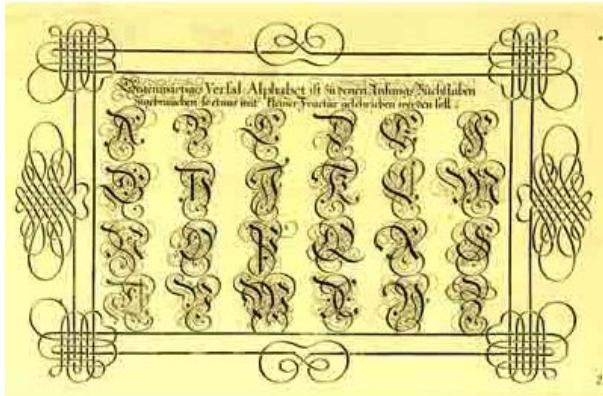 Gegenwärtiges Versal Alphabet ist zu denen Anfangs Buchstaben
zugebrauchen so etwas mit kleiner Fractur geschrieben werden soll.
A B C D E F
G H I K L M
N O P Q R S
T V W X Y Z